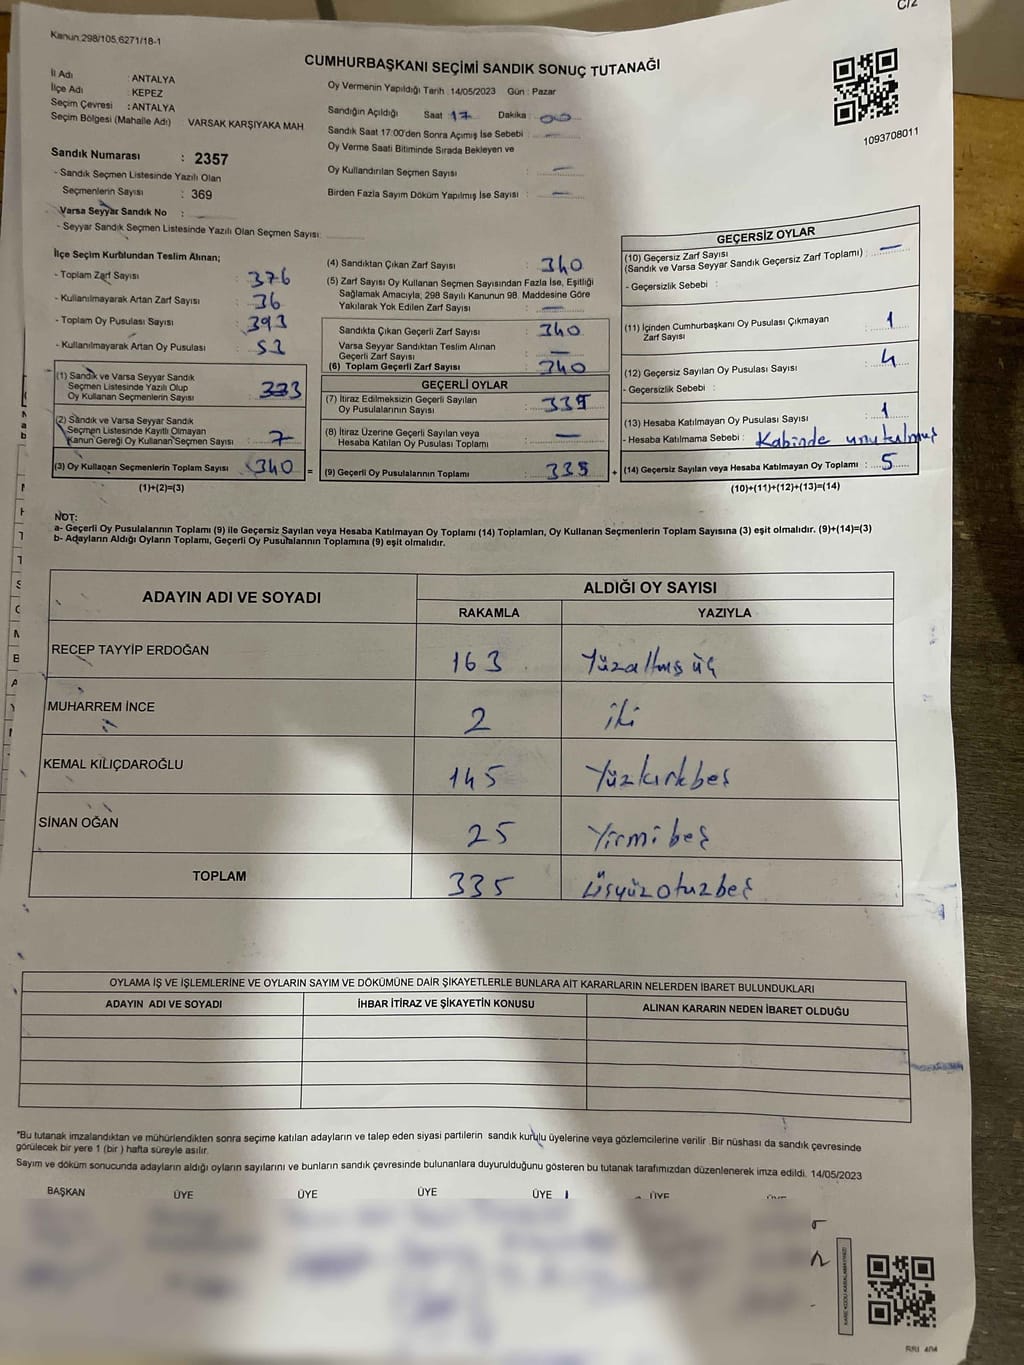 C/2
Kanun.298/105,6271/18-1
CUMHURBAŞKANI SEÇİMİ SANDIK SONUÇ TUTANAĞI
İl Adı : ANTALYA
İlçe Adı : KEPEZ
Seçim Çevresi : ANTALYA
Seçim Bölgesi (Mahalle Adı) VARSAK KARŞIYAKA MAH
Sandık Numarası : 2357
- Sandık Seçmen Listesinde Yazılı Olan
Seçmenlerin Sayısı : 369
Varsa Seyyar Sandık No :
- Seyyar Sandık Seçmen Listesinde Yazılı Olan Seçmen Sayısı:
Oy Vermenin Yapıldığı Tarih : 14/05/2023 Gün : Pazar
Sandığın Açıldığı Saat 17 Dakika 00
Sandık Saat 17:00'den Sonra Açımış İse Sebebi : —
Oy Verme Saati Bitiminde Sırada Bekleyen ve
Oy Kullandırılan Seçmen Sayısı : —
Birden Fazla Sayım Döküm Yapılmış İse Sayısı : —
1093708011
İlçe Seçim Kurulundan Teslim Alınan;
- Toplam Zarf Sayısı : 376
- Kullanılmayarak Artan Zarf Sayısı : 36
- Toplam Oy Pusulası Sayısı : 393
- Kullanılmayarak Artan Oy Pusulası : 53
(1) Sandık ve Varsa Seyyar Sandık
Seçmen Listesinde Yazılı Olup
Oy Kullanan Seçmenlerin Sayısı : 333
(2) Sandık ve Varsa Seyyar Sandık
Seçmen Listesinde Kayıtlı Olmayan
Kanun Gereği Oy Kullanan Seçmen Sayısı : 7
(3) Oy Kullanan Seçmenlerin Toplam Sayısı : 340
(1)+(2)=(3)
(4) Sandıktan Çıkan Zarf Sayısı : 340
(5) Zarf Sayısı Oy Kullanan Seçmen Sayısından Fazla İse, Eşitliği
Sağlamak Amacıyla, 298 Sayılı Kanunun 98. Maddesine Göre
Yakılarak Yok Edilen Zarf Sayısı : —
Sandıkta Çıkan Geçerli Zarf Sayısı : 340
Varsa Seyyar Sandıktan Teslim Alınan
Geçerli Zarf Sayısı : —
(6) Toplam Geçerli Zarf Sayısı : 340
GEÇERLİ OYLAR
(7) İtiraz Edilmeksizin Geçerli Sayılan
Oy Pusulalarının Sayısı : 335
(8) İtiraz Üzerine Geçerli Sayılan veya
Hesaba Katılan Oy Pusulası Toplamı : —
= (9) Geçerli Oy Pusulalarının Toplamı : 335 +
GEÇERSİZ OYLAR
(10) Geçersiz Zarf Sayısı
(Sandık ve Varsa Seyyar Sandık Geçersiz Zarf Toplamı) : —
- Geçersizlik Sebebi :
(11) İçinden Cumhurbaşkanı Oy Pusulası Çıkmayan
Zarf Sayısı : 1
(12) Geçersiz Sayılan Oy Pusulası Sayısı : 4
- Geçersizlik Sebebi :
(13) Hesaba Katılmayan Oy Pusulası Sayısı : 1
- Hesaba Katılmama Sebebi : Kabinde unutulmuş
(14) Geçersiz Sayılan veya Hesaba Katılmayan Oy Toplamı : 5
(10)+(11)+(12)+(13)=(14)
NOT:
a- Geçerli Oy Pusulalarının Toplamı (9) ile Geçersiz Sayılan veya Hesaba Katılmayan Oy Toplamı (14) Toplamları, Oy Kullanan Seçmenlerin Toplam Sayısına (3) eşit olmalıdır. (9)+(14)=(3)
b- Adayların Aldığı Oyların Toplamı, Geçerli Oy Pusulalarının Toplamına (9) eşit olmalıdır.
ADAYIN ADI VE SOYADI ALDIĞI OY SAYISI
RAKAMLA YAZIYLA
RECEP TAYYİP ERDOĞAN 163 Yüzaltmış üç
MUHARREM İNCE 2 iki
KEMAL KILIÇDAROĞLU 145 Yüzkırkbeş
SİNAN OĞAN 25 Yirmi beş
TOPLAM 335 Üçyüzotuzbeş
OYLAMA İŞ VE İŞLEMLERİNE VE OYLARIN SAYIM VE DÖKÜMÜNE DAİR ŞİKAYETLERLE BUNLARA AİT KARARLARIN NELERDEN İBARET BULUNDUKLARI
ADAYIN ADI VE SOYADI İHBAR İTİRAZ VE ŞİKAYETİN KONUSU ALINAN KARARIN NEDEN İBARET OLDUĞU
"Bu tutanak imzalandıktan ve mühürlendikten sonra seçime katılan adayların ve talep eden siyasi partilerin sandık kurulu üyelerine veya gözlemcilerine verilir .Bir nüshası da sandık çevresinde
görülecek bir yere 1 (bir ) hafta süreyle asılır.
Sayım ve döküm sonucunda adayların aldığı oyların sayılarını ve bunların sandık çevresinde bulunanlara duyurulduğunu gösteren bu tutanak tarafımızdan düzenlenerek imza edildi. 14/05/2023
BAŞKAN ÜYE ÜYE ÜYE ÜYE ÜYE